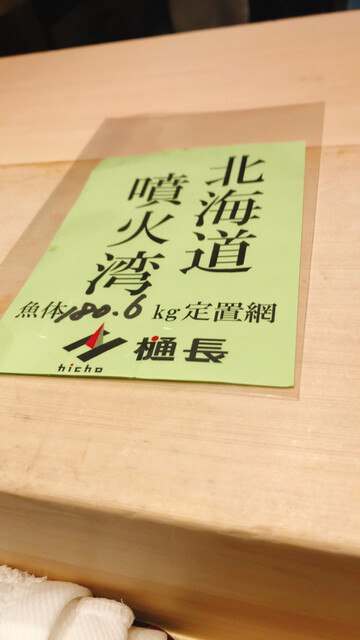 北海道
噴火湾
魚体180.6kg定置網
樋長
hicho